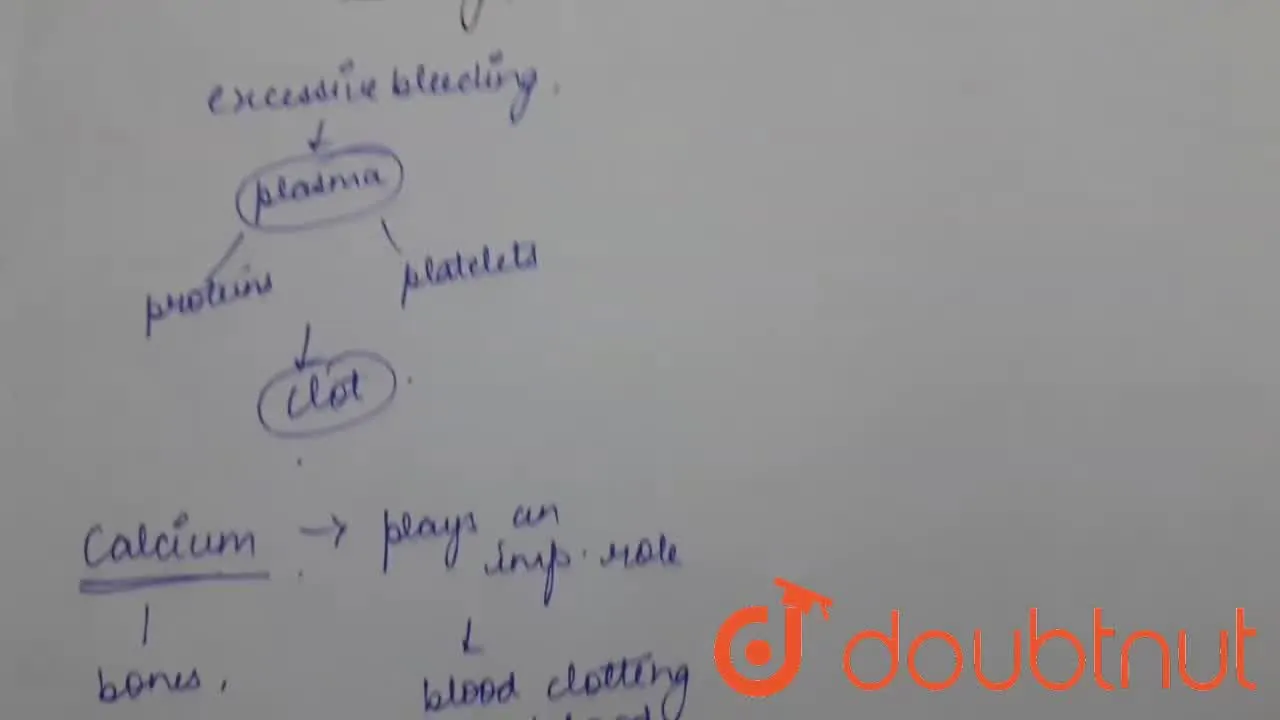 excessive bleeding.
plasma
proteins platelets
clot.
Calcium → plays an
imp. role
bones,
blood clotting
blood
doubtnut